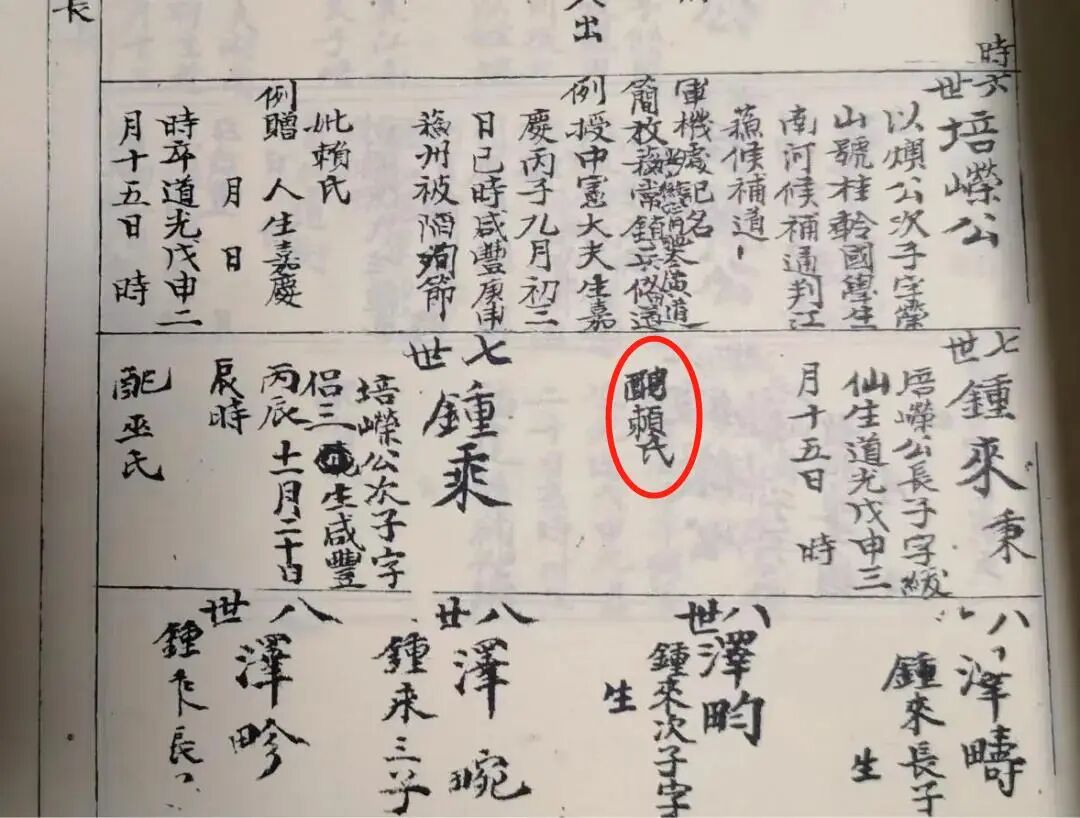 長
出
時
六世
培嶸公
以煩公次子字榮
山號桂軡國學生
南河候補通判江
蘓候補道
軍機處記名
簡放蘓常鎮
兵備道
例授中憲大夫生嘉
慶丙子九月初二
日巳時咸豐庚申
蘓州被陷殉節
妣賴氏
例贈 人生嘉慶
月 日
時卒道光戊申二
月十五日 時
七世
鍾來 秉
培嶸公長子字緩
仙生道光戊申三
月十五日 時
配賴氏
七世
鍾乘
培嶸公次子字
侶三 生咸豐
丙辰十一月二十日
辰時
配巫氏
八
澤疇
鍾來長子
生
八世
澤畇
鍾來次子字
生
八世
澤畹
鍾來三子
八世
澤畛
鍾乘長